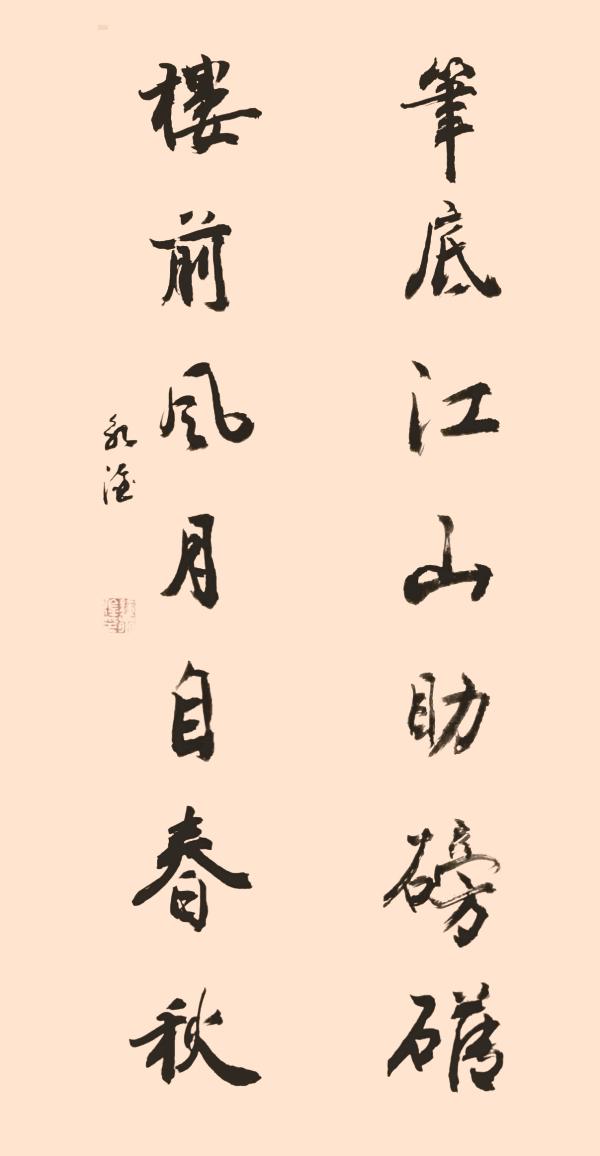 筆底江山助磅礴
樓前風月自春秋
永瑆